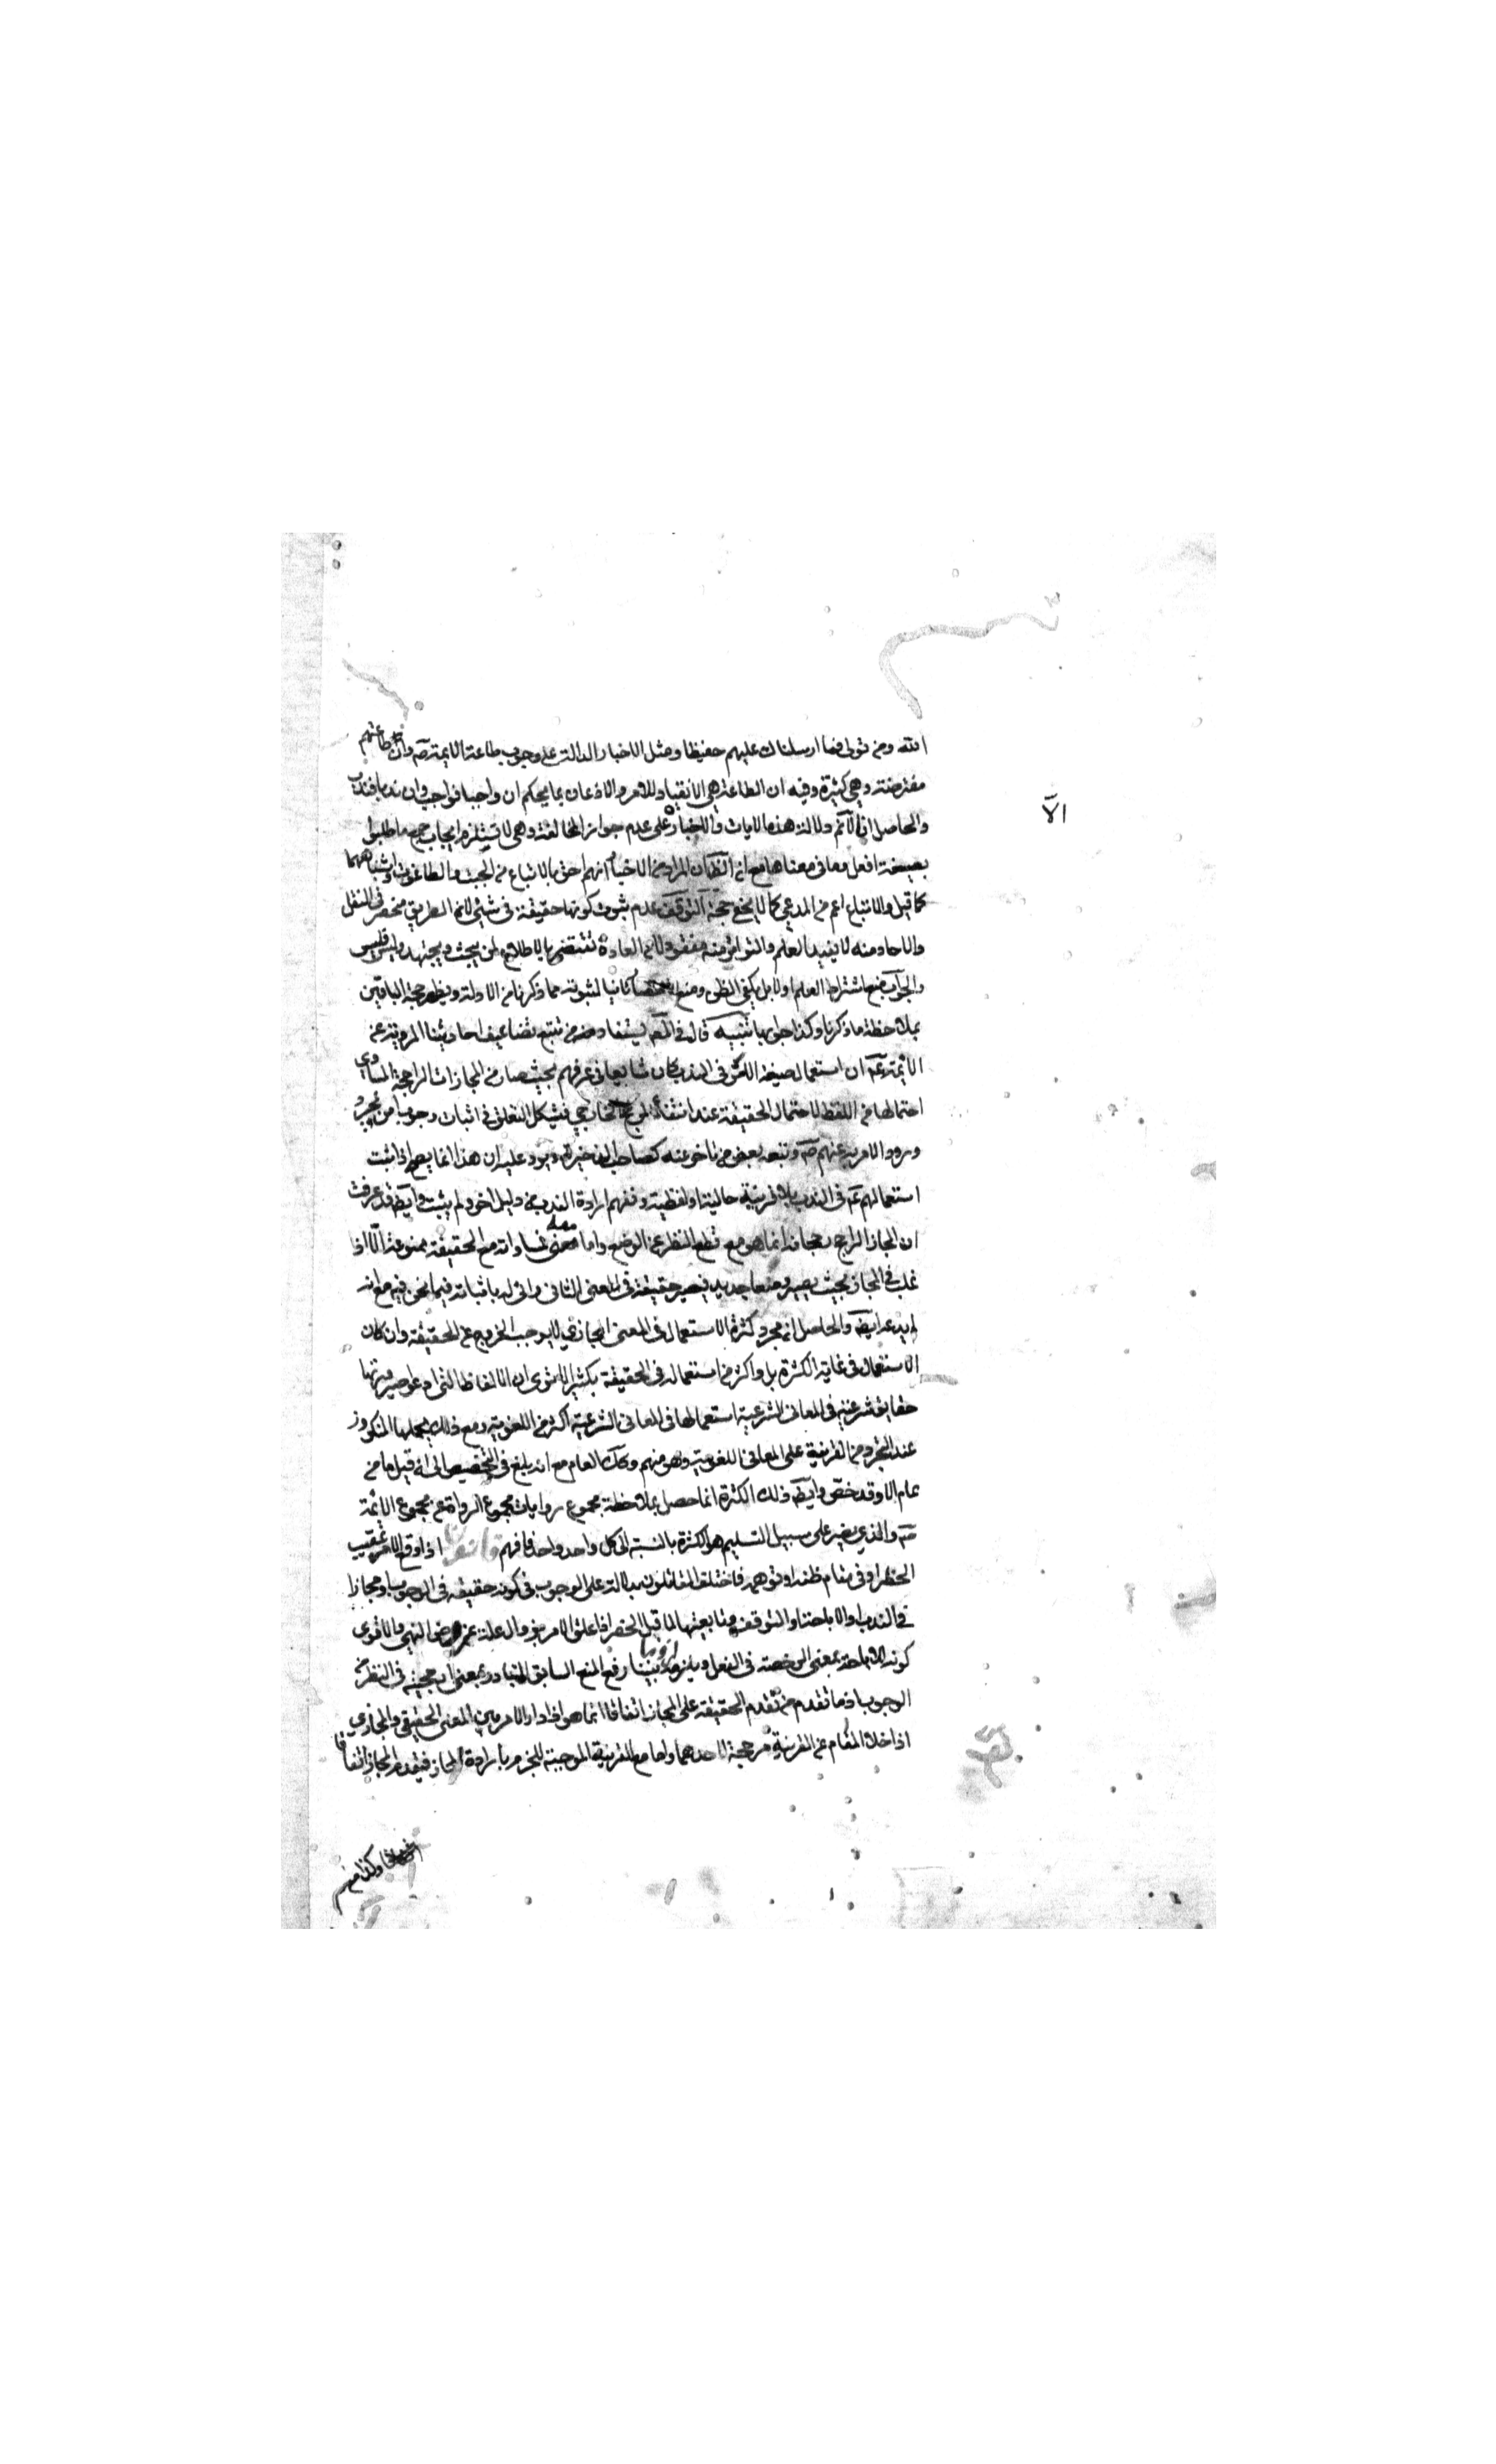 الله ومن تولى فما ارسلناك عليهم حفيظا ومثل الاخبار الدالة على وجوب طاعة الائمة صه وان طاعتهم
مفترضة وهي كثيرة وفيه ان الطاعة هي الانقياد للامر والاذعان بما يحكم ان واجبا فواجب وان ندبا فندب
الا
والحاصل انه لا تتم دلالة هذه الايات والاخبار على عدم جواز المخالفة وهي لا تستلزم ايجاب جميع ما طلبوا
بصيغة افعل وما في معناها مع ان الظ ان المراد من الاخبار انهم احق بالاتباع من الجبت والطاغوت واشباههما
كما قيل والاتباع اعم من المدعي كما لا يخفى حجة التوقف عدم ثبوت كونها حقيقة في شيء لان الطريق منحصر في النقل
والاحاد منه لا يفيد العلم والتواتر منه مفقود لان العادة تقتضي بالاطلاع لمن يبحث ويجتهد وليس فليس
والجواب منع اشتراط العلم اولا بل يكفي الظن ومنع ثانيا لثبوته مما ذكرنا من الادلة ويظهر حجة الباقين
بملاحظة ما ذكرنا وكذا جوابها تنبيه قال في المعالم يستفاد من تتبع تضاعيف احاديثنا المروية عن
الائمة عم ان استعمال صيغة الامر في الندب كان شايعا في عرفهم بحيث صار من المجازات الراجحة المساوي
احتمالها من اللفظ لاحتمال الحقيقة عند انتفاء المرجح الخارجي فيشكل التعلق في اثبات وجوب امر بمجرد
ورود الامر به عنهم صه وتبعه بعض من تاخر عنه كصاحب الذخيرة ويرد عليه ان هذا انما يصح اذا ثبت
استعمالهم عم في الندب بلا قرينة حالية او لفظية وتفهم ارادة الندب من دليل اخر ولم يثبت وايض قد عرفت
ان المجاز الراجح رجحانه انما هو مع قطع النظر عن الوضع واما معه فمساواته مع الحقيقة ممنوعة الا اذا
غلب في المجاز بحيث يصير وضعا جديدا فيصير حقيقة في المعنى الثاني واني له باثباته فيما نحن فيه مع انه
لم يدعه ايض والحاصل ان مجرد كثرة الاستعمال في المعنى المجازي لا يوجب الخروج عن الحقيقة وان كان
الاستعمال في غاية الكثرة بل واكثر من استعماله في الحقيقة بكثير الا ترى ان الالفاظ التي ادعوا صيرورتها
حقايق شرعية في المعاني الشرعية استعمالها في المعاني الشرعية اكثر من اللغوية ومع ذلك يحملها المنكرون
عند التجرد من القرينة على المعاني اللغوية وهو منهم وكذلك العام مع انه بلغ في التخصيص الى ان قيل ما من
عام الا وقد خص وايض ذلك الكثرة انما حصل بملاحظة مجموع روايات مجموع الرواة عن مجموع الائمة
صه والذي يضير على سبيل التسليم هو الكثرة بالنسبة الى كل واحد واحد فافهم قانون اذا وقع الامر عقيب
الحظر او في مقام ظنه او توهمه فاختلف القائلون بدلالته على الوجوب في كونه حقيقة في الوجوب او مجازا
في الندب او الاباحة او التوقف او تابعيتها لما قبل الحظر اذا علق الامر بزوال علة عروض النهي والاقوى
كونه للاباحة بمعنى الرخصة في الفعل ويلزمه لزوما بينا رفع المنع السابق للتبادر بمعنى ارجحيته في النظر من
الوجوب اذ ما تقدم من تقدم الحقيقة على المجاز اتفاقا انما هو اذا دار الامر بين المعنى الحقيقي والمجازي
اذا خلا المقام عن القرينة مرجحة لاحدهما واما مع القرينة الموجبة للجزم بارادة المجاز فيقدم المجاز اتفاقا
وكذا مع